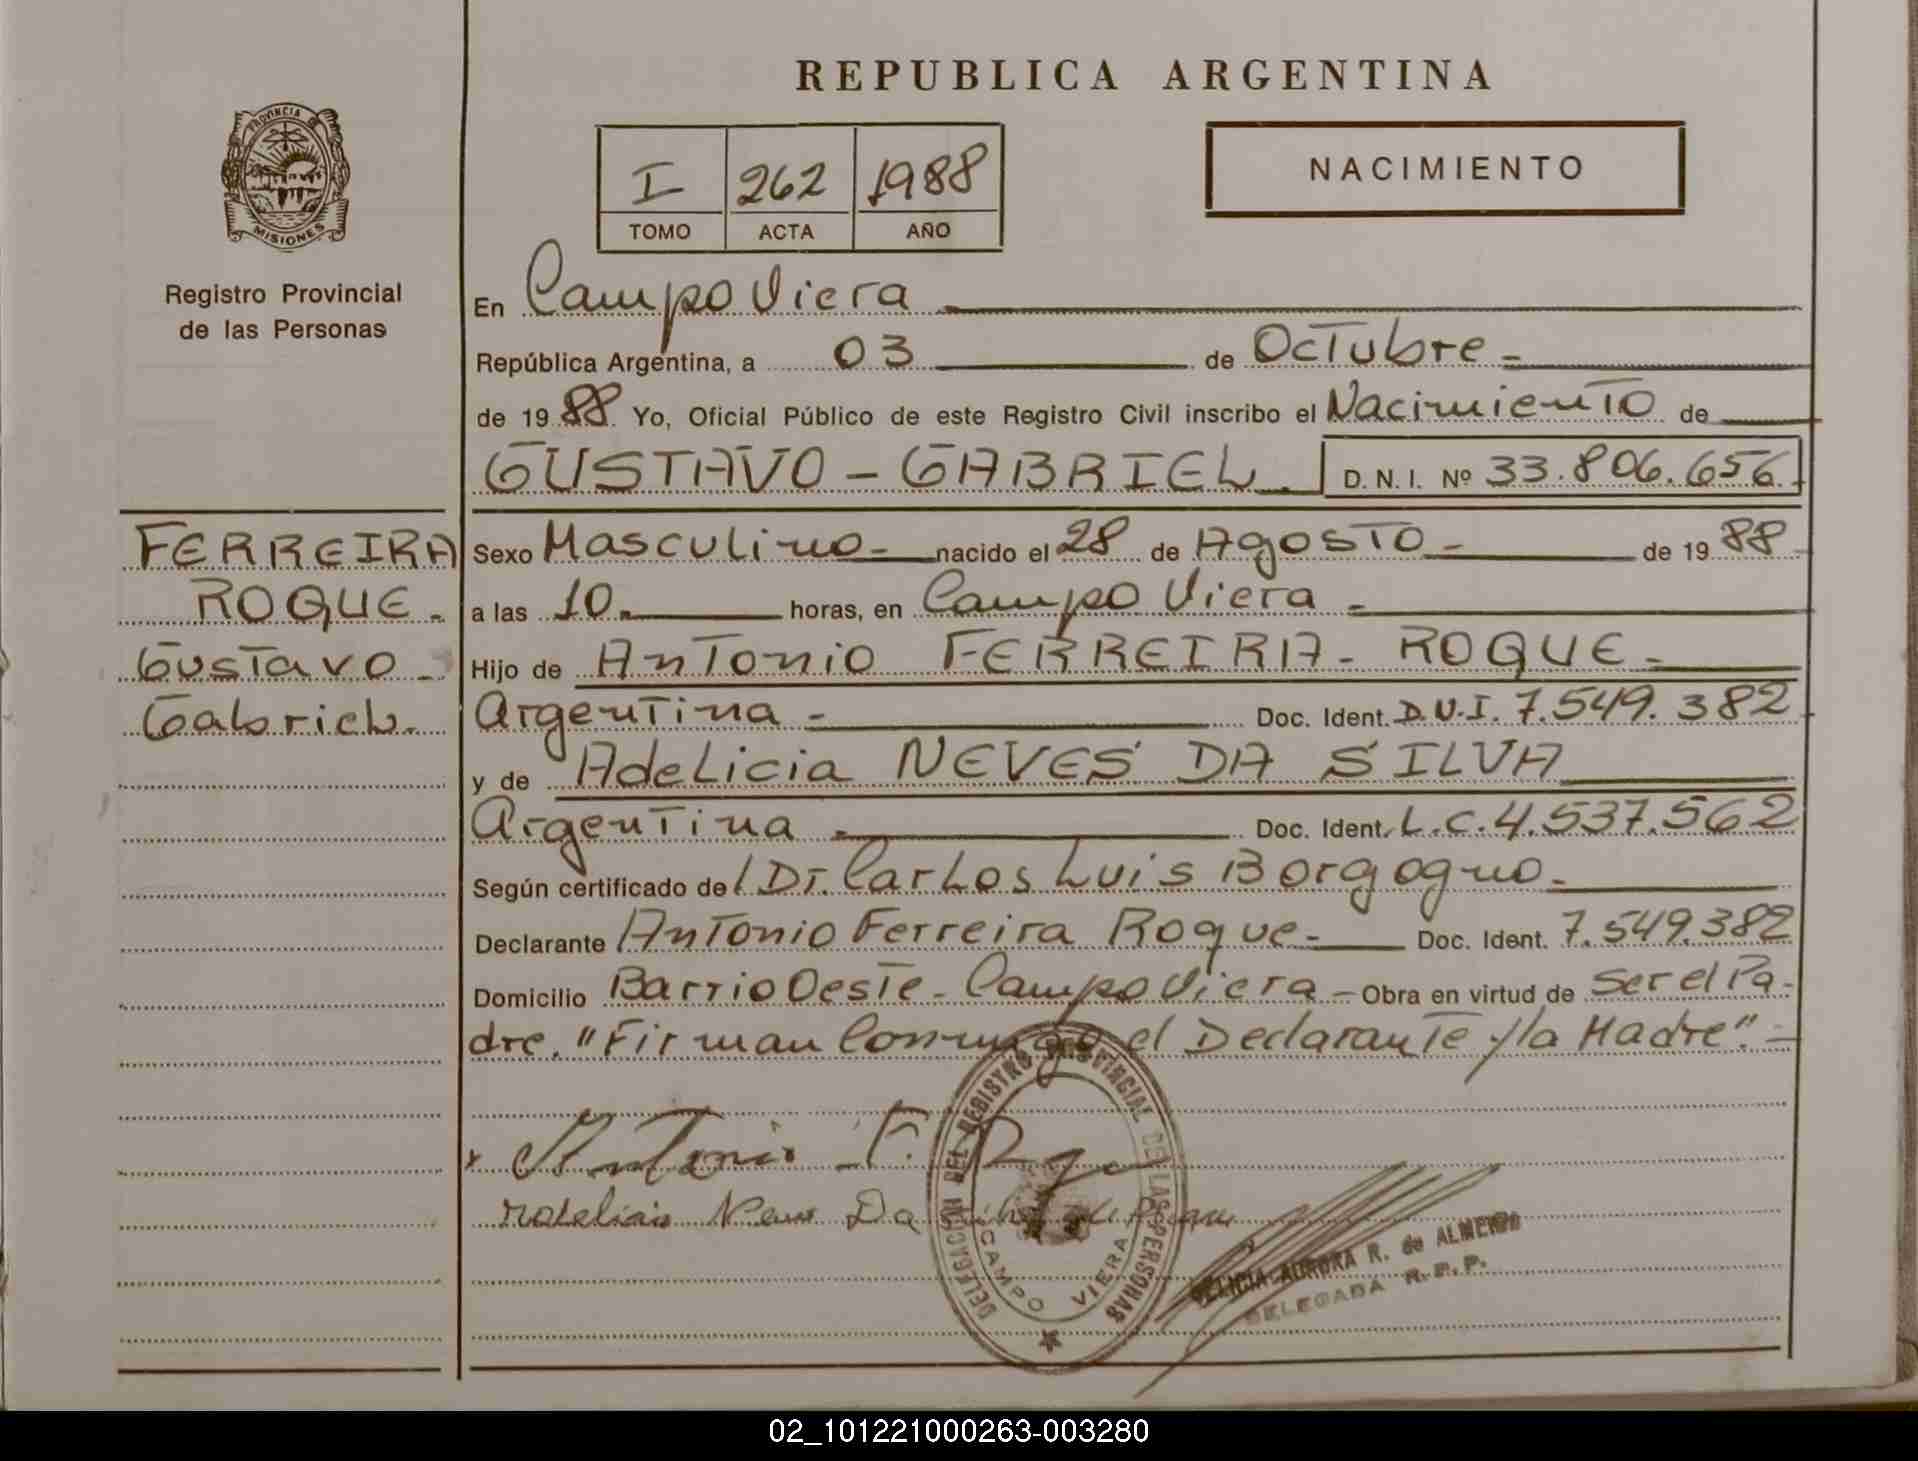 REPUBLICA ARGENTINA
PROVINCIA DE
MISIONES
Registro Provincial
de las Personas
I 262 1988
TOMO ACTA AÑO
NACIMIENTO
En Campo Viera
República Argentina, a 03 de Octubre
de 1988 Yo, Oficial Público de este Registro Civil inscribo el Nacimiento de
GUSTAVO - GABRIEL. D. N. I. Nº 33.806.656.
FERREIRA
ROQUE.
Gustavo
Gabriel.
Sexo Masculino nacido el 28 de Agosto de 1988
a las 10. horas, en Campo Viera
Hijo de Antonio FERREIRA - ROQUE
Argentina Doc. Ident. D.N.I. 7.549.382
y de Adelicia NEVES DA SILVA
Argentina Doc. Ident. L.C. 4.537.562
Según certificado de / Dr. Carlos Luis Borgogno
Declarante Antonio Ferreira Roque Doc. Ident. 7.549.382
Domicilio Barrio Oeste - Campo Viera - Obra en virtud de ser el Pa-
dre. "Firman Conmigo el Declarante y la Madre".
Antonio F.
Da
DELEGACION DEL REGISTRO PROVINCIAL DE LAS PERSONAS
CAMPO VIERA
AURORA R. de ALMEIDA
DELEGADA R. P. P.
02_101221000263-003280